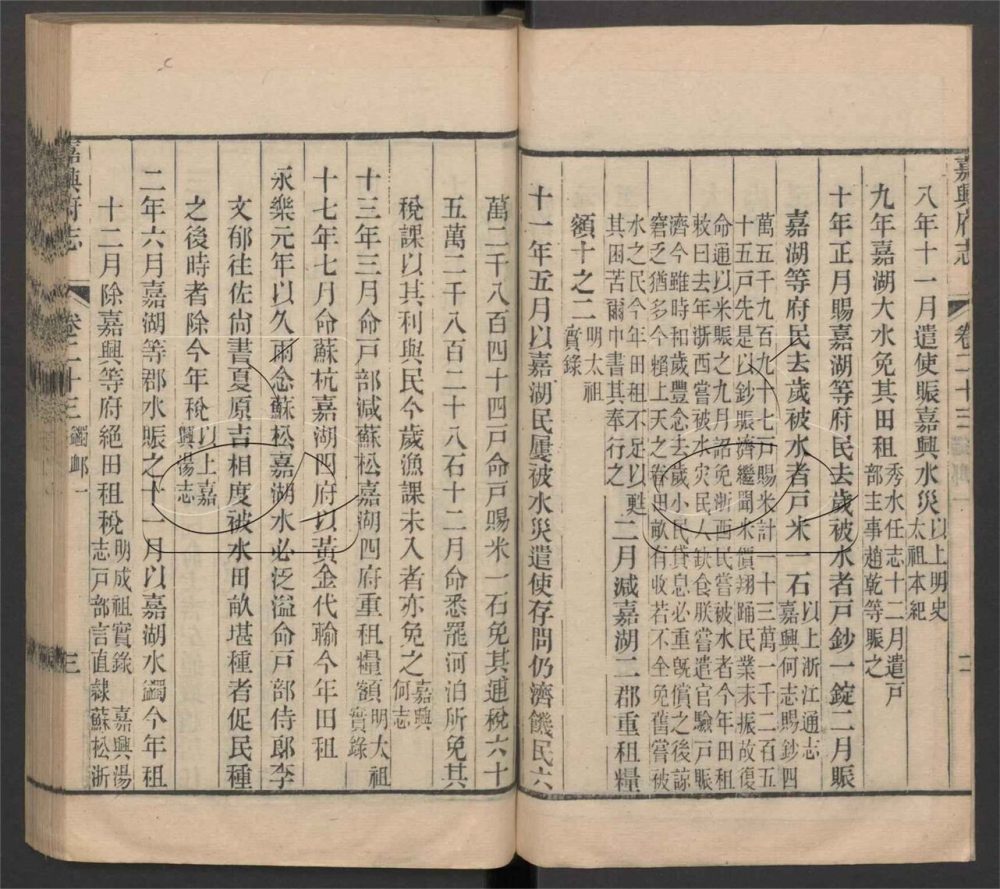 嘉興府志 卷二十三 二
八年十一月遣使賑嘉興水災以上明史太祖本紀
九年嘉湖大水免其田租秀水任志十二月遣戸部主事趙乾等賑之
十年正月賜嘉湖等府民去歲被水者戸鈔一錠二月賑
嘉湖等府民去歲被水者戸米一石以上浙江通志嘉興何志賜鈔四
萬五千九百九十七戸賜米計一十三萬一千二百五
十五戸先是以鈔賑濟繼聞米價翔踊民業未振故復
命通以米賑之九月詔免浙西民嘗被水者今年田租
敕曰去年浙西嘗被水灾民人缺食朕嘗遣官驗戸賑
濟今雖時和歲豐念去歲小民貸息必重旣償之後諒
窘乏猶多今賴上天之眷田畝有收若不全免舊嘗被
水之民今年田租不足以甦
其困苦爾中書其奉行之
二月減嘉湖二郡重租糧
額十之二明太祖實錄
十一年五月以嘉湖民屢被水災遣使存問仍濟饑民六
萬二千八百四十四戸命戸賜米一石免其逋稅六十
五萬二千八百二十八石十二月命悉罷河泊所免其
稅課以其利與民今歲漁課未入者亦免之嘉興何志
十三年三月命戸部減蘇松嘉湖四府重租糧額明太祖實錄
十七年七月命蘇杭嘉湖四府以黃金代輸今年田租
永樂元年以久雨念蘇松嘉湖水必泛溢命戸部侍郎李
文郁往佐尙書夏原吉相度被水田畝堪種者促民種
之後時者除今年稅以上嘉興湯志
二年六月嘉湖等郡水賑之十一月以嘉湖水蠲今年租
十二月除嘉興等府絕田租稅明成祖實錄 嘉興湯志戸部言直隸蘇松浙
嘉興府志 卷二十三 蠲卹一 三